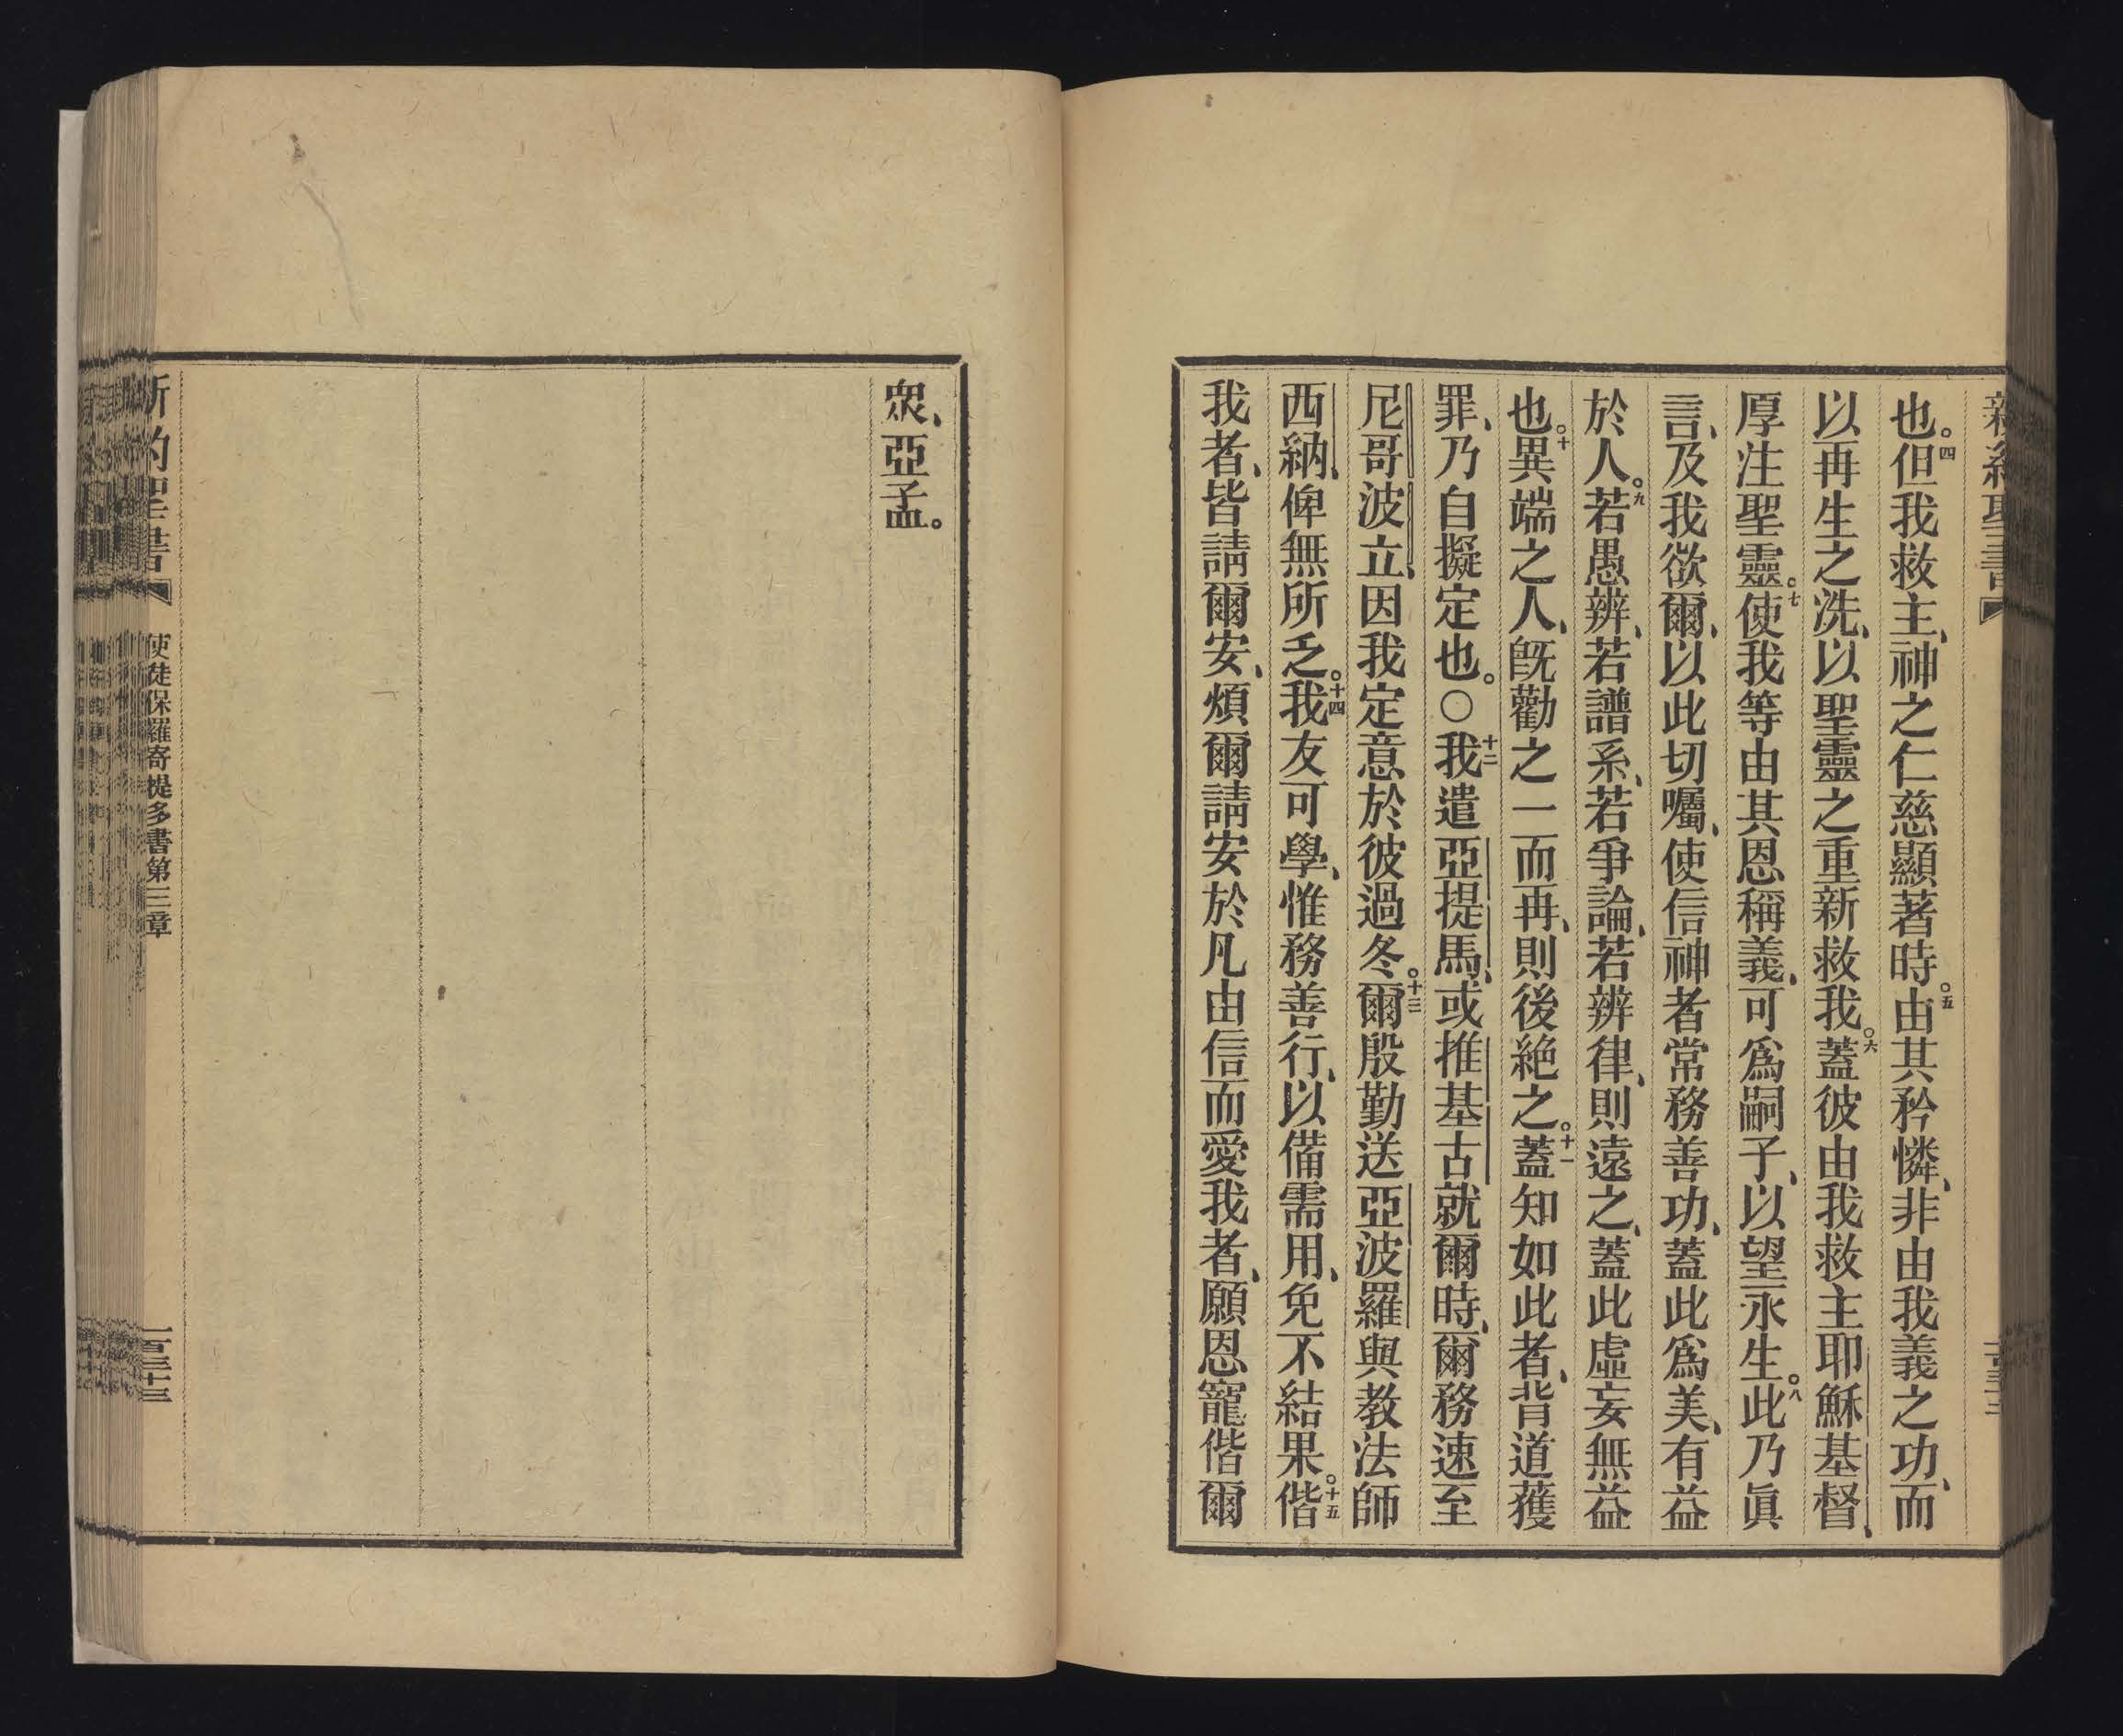 新約聖書
也。四但我救主、神之仁慈顯著時。五由其矜憐、非由我義之功、而
以再生之洗、以聖靈之重新救我。六蓋彼由我救主耶穌基督、
厚注聖靈。七使我等由其恩稱義、可爲嗣子、以望永生。八此乃眞
言、及我欲爾、以此切囑、使信神者常務善功、蓋此爲美、有益
於人。九若愚辨、若譜系、若爭論、若辨律、則遠之、蓋此虛妄無益
也。十異端之人、旣勸之一而再、則後絶之。十一蓋知如此者、背道獲
罪、乃自擬定也。○十二我遣亞提馬、或推基古就爾時、爾務速至
尼哥波立、因我定意於彼過冬。十三爾殷勤送亞波羅與教法師
西納、俾無所乏。十四我友可學、惟務善行、以備需用、免不結果。十五偕
我者、皆請爾安、煩爾請安於凡由信而愛我者、願恩寵偕爾
衆、亞孟。
新約聖書
使徒保羅寄提多書第三章
一百三十三